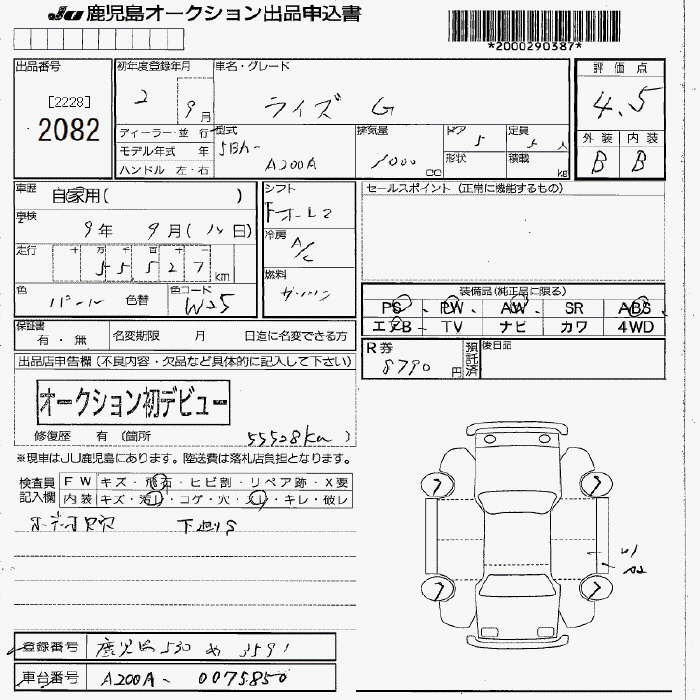 JU 鹿児島オークション出品申込書
*2000290387*
出品番号
[2228]
2082
初年度登録年月
2 9月
車名・グレード
ライズ G
評価点
4.5
外装 内装
B B
ディーラー・並行
モデル年式 年
ハンドル 左・右
型式
5BA-
A200A
排気量
1000
cc
ドア 5
形状
定員 5人
積載 kg
車歴 自家用( )
車検
9年 9月( 日)
走行 十 万 千 百 十 一
55,527 km
色 パール 色替
色コード W25
シフト
冷房 A/C
燃料 ガソリン
セールスポイント (正常に機能するもの)
装備品(純正品に限る)
PS PW AW SR ABS
エアB TV ナビ カワ 4WD
保証書
有・無
名変期限 月 日迄に名変できる方
R券
8790円
預託済
後日品
出品店申告欄(不良内容・欠品など具体的に記入して下さい)
オークション初デビュー
修復歴 有(箇所 55528km )
※現車はJU鹿児島にあります。陸送費は落札店負担となります。
検査員記入欄
FW キズ・飛石・ヒビ割・リペア跡・X要
内装 キズ・汚れ・コゲ・穴・スレ・キレ・破レ
下廻りS
U1
A2
登録番号 鹿児島 530 め 3591
車台番号 A200A-0075850